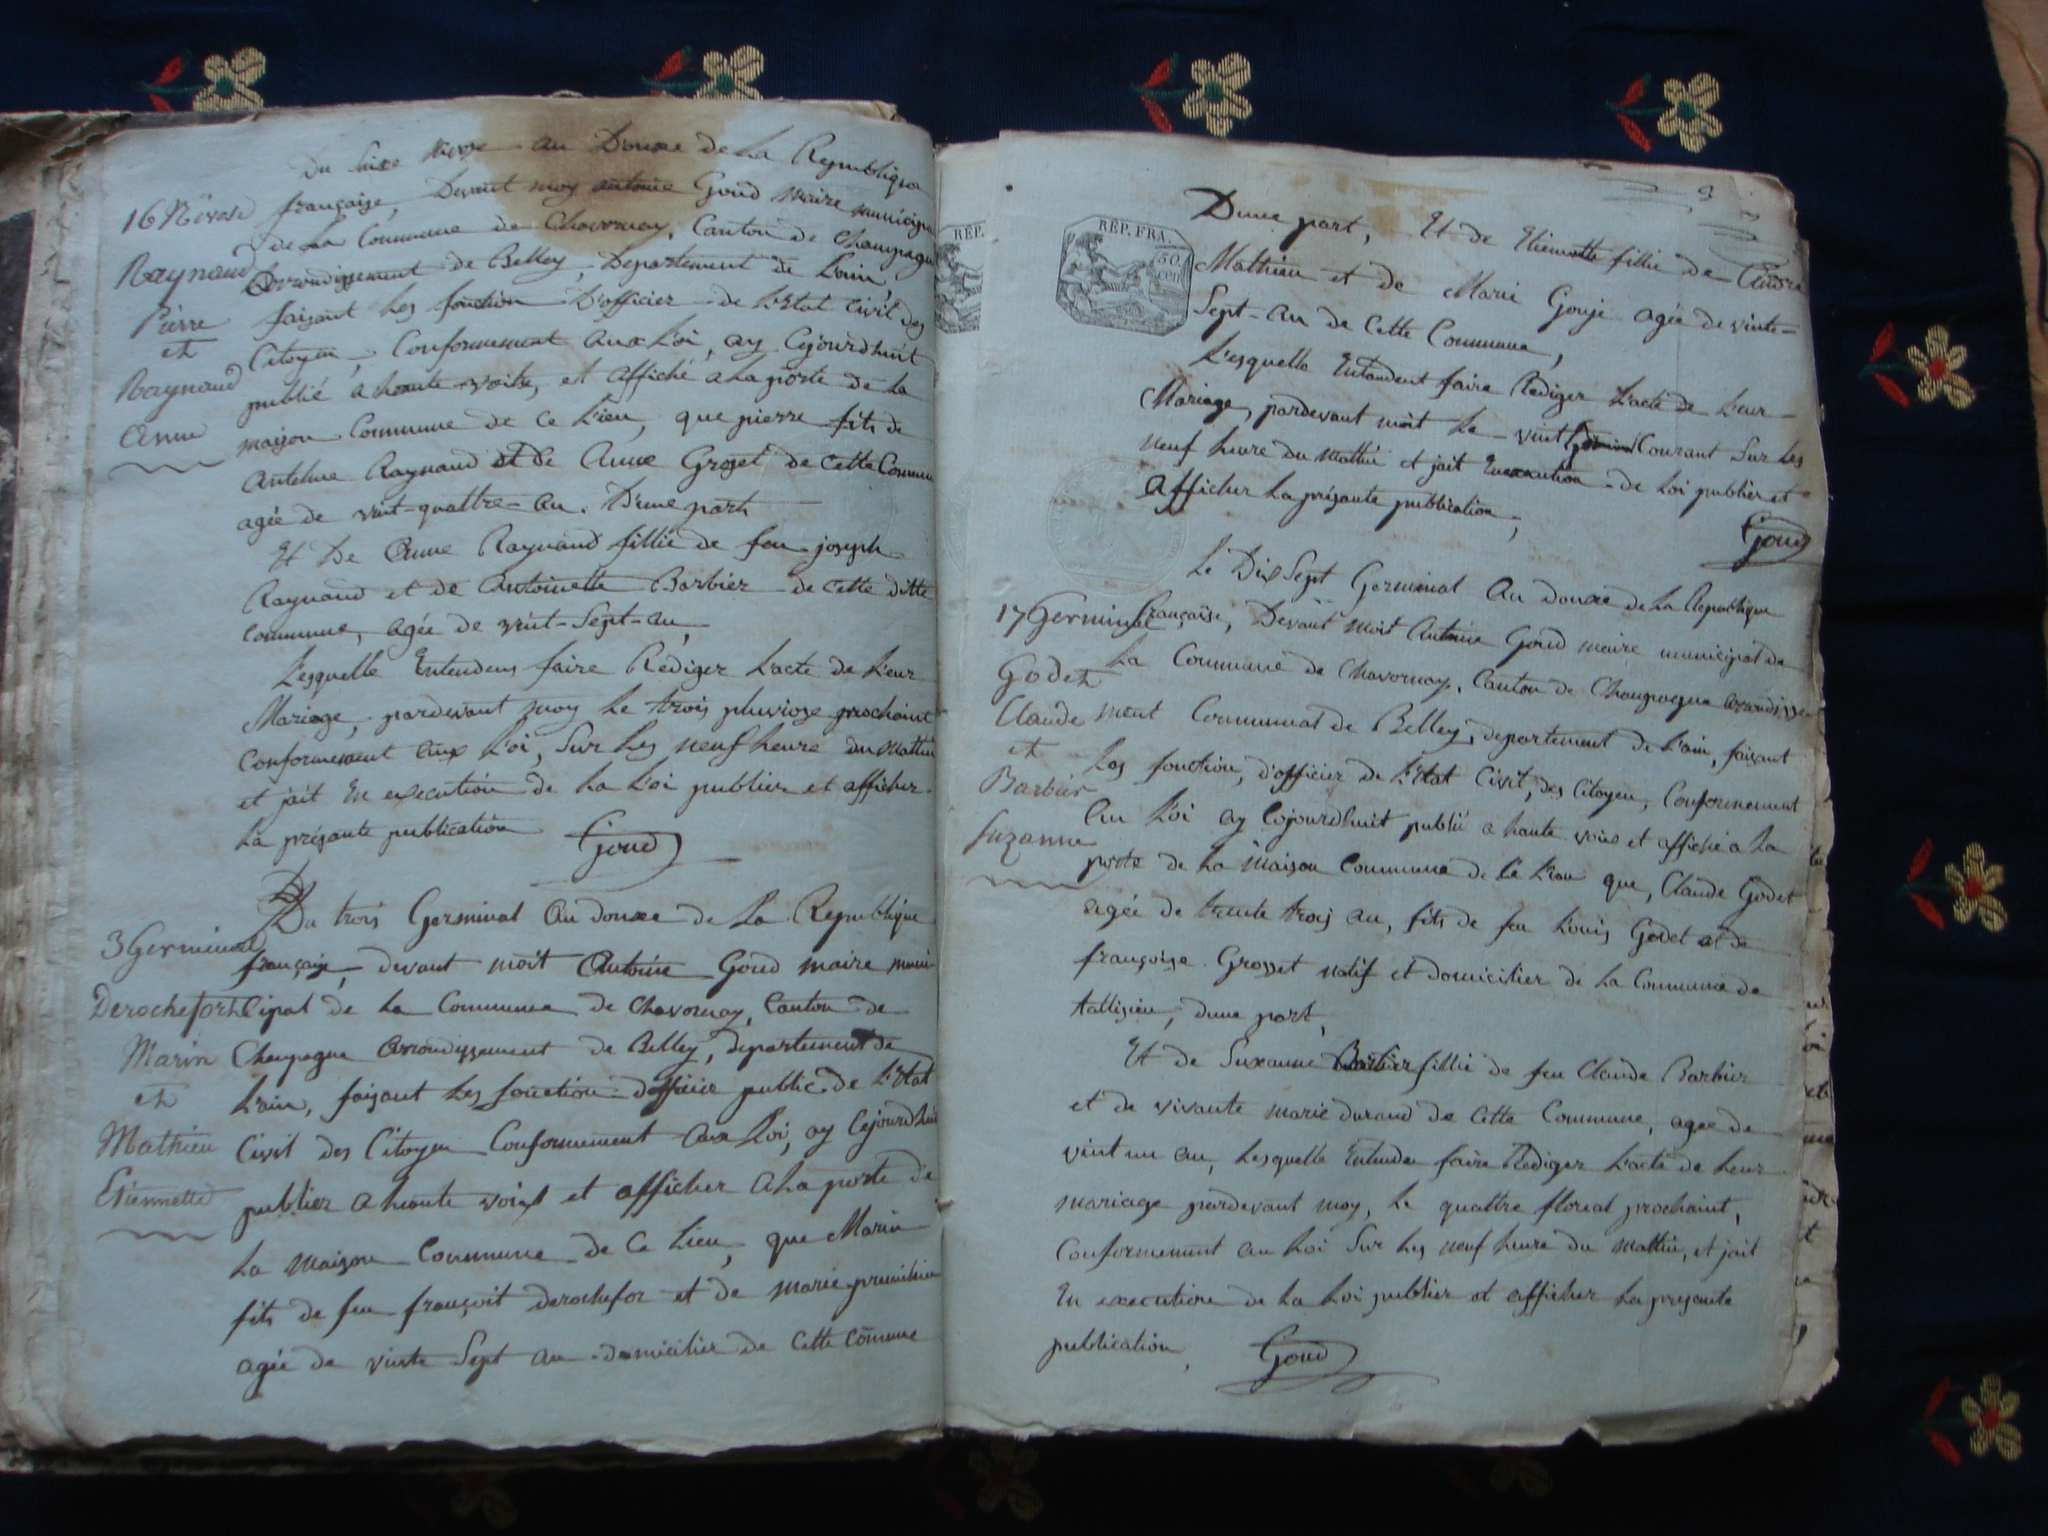 16 Nivose
Raynaud
Pierre
et
Raynaud
Anne
Du seize Nivose an Douxe de La Republique
française, Devant moy antoine Goud maire municipa
de La Commune de Chavornay, Canton de Champagne
Arrondissement de Belley, Departement de L'ain
faisant Les fonction D'officier de L'Etat Civil des
Citoyen, Conformement aux Loi, ay Cejourd'huit
publié a haute voix, et affiché a La porte de La
maison Commune de Ce Lieu, que pierre fils de
Antelme Raynaud et de Anne Groset de Cette Commune
agée de vint-quattre-an. D'une part
Et De Anne Raynaud fillie de feu joseph
Raynaud et de Antoinette Barbier de Cette ditte
Commune, agée de vint-Sept-an,
Lesquelle Entendens faire Rediger L'acte de Leur
Mariage, pardevant moy Le trois pluviose prochaint
Conformement aux Loi, Sur Les neuf heure du mattin
et jait En execution de La Loi publier et afficher
La présante publication
Goud
3 Germinal
Derochefort
Marin
et
Mathieu
Etiennette
Du trois Germinal an douxe de La Republique
française, devant moit Antoine Goud maire muni-
cipal de La Commune de Chavornay, Canton de
Champagne Arrondissement de Belley, departement de
L'ain, faisant Les fonction d'officie public de L'Etat
Civil des Citoyen Conformement aux Loi, ay Cejourd'huit
publier a haute voix et afficher a La porte de
La maison Commune de Ce Lieu, que Marin
fils de feu françoit derochefor et de marie
agée de vinte Sept an domicilier de Cette Commune
3
REP.
REP. FRA.
50.
cen
D'une part, Et de Etiennette fillie de Andre
Mathieu et de Marie Gouje agée de vinte-
Sept-an de Cette Commune,
Lesquelle Entandent faire Rediger L'acte de Leur
Mariage, pardevant moit Le vint Courant Sur Les
neuf heure du mattin et jait En execution de Loi publier et
afficher La présante publication,
Goud
17 Germinal
Godet
Claude
et
Barbier
Suzanne
Le Dix Sept Germinal an douxe de La Republique
française, Devant moit Antoine Goud maire municipal de
La Commune de Chavornay, Canton de Champagne arrondisse
ment Communal de Belley, departement de L'ain, faisant
Les fonction, d'officier de L'Etat Civil, des Citoyen, Conformement
au Loi ay Cejourd'huit publié a haute voix et affiché a La
porte de La maison Commune de Ce Lieu que, Claude Godet
agée de trente trois an, fils de feu Louis Godet et de
françoise Grosset natif et domicilier de La Commune de
tallisieu, d'une part,
Et de Suxanne Barbier fillie de feu Claude Barbier
et de vivante marie durand de Cette Commune, agée de
vint un an, Lesquelle Entende faire Rediger L'acte de Leur
mariage pardevant moy, Le quattre floreal prochaint,
Conformement au Loi Sur Les neuf heure du mattin, et jait
En execution de La Loi publier et afficher La presante
publication,
Goud